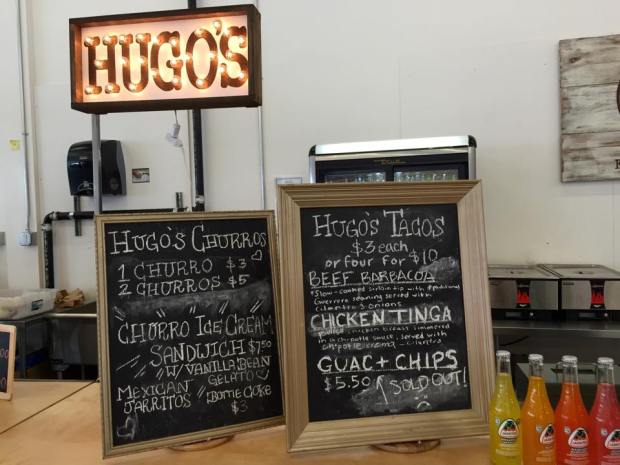 HUGO'S
HUGO'S CHURROS
1 CHURRO $3
2 CHURROS $5
CHURRO ICE CREAM
SANDWICH $7.50
W/ VANILLA BEAN
GELATO
MEXICAN
JARRITOS
HOME COKE
$3
HUGO'S TACOS
$3 each
or four for $10
BEEF BARBACOA
slow-cooked sirloin tip with traditional
guerrero seaning served with
cilantro & onions
CHICKEN TINGA
pulled chicken breast simmered
in a chipotle sauce, served with
chipotle crema & cilantro
GUAC + CHIPS
$5.50 SOLD OUT!